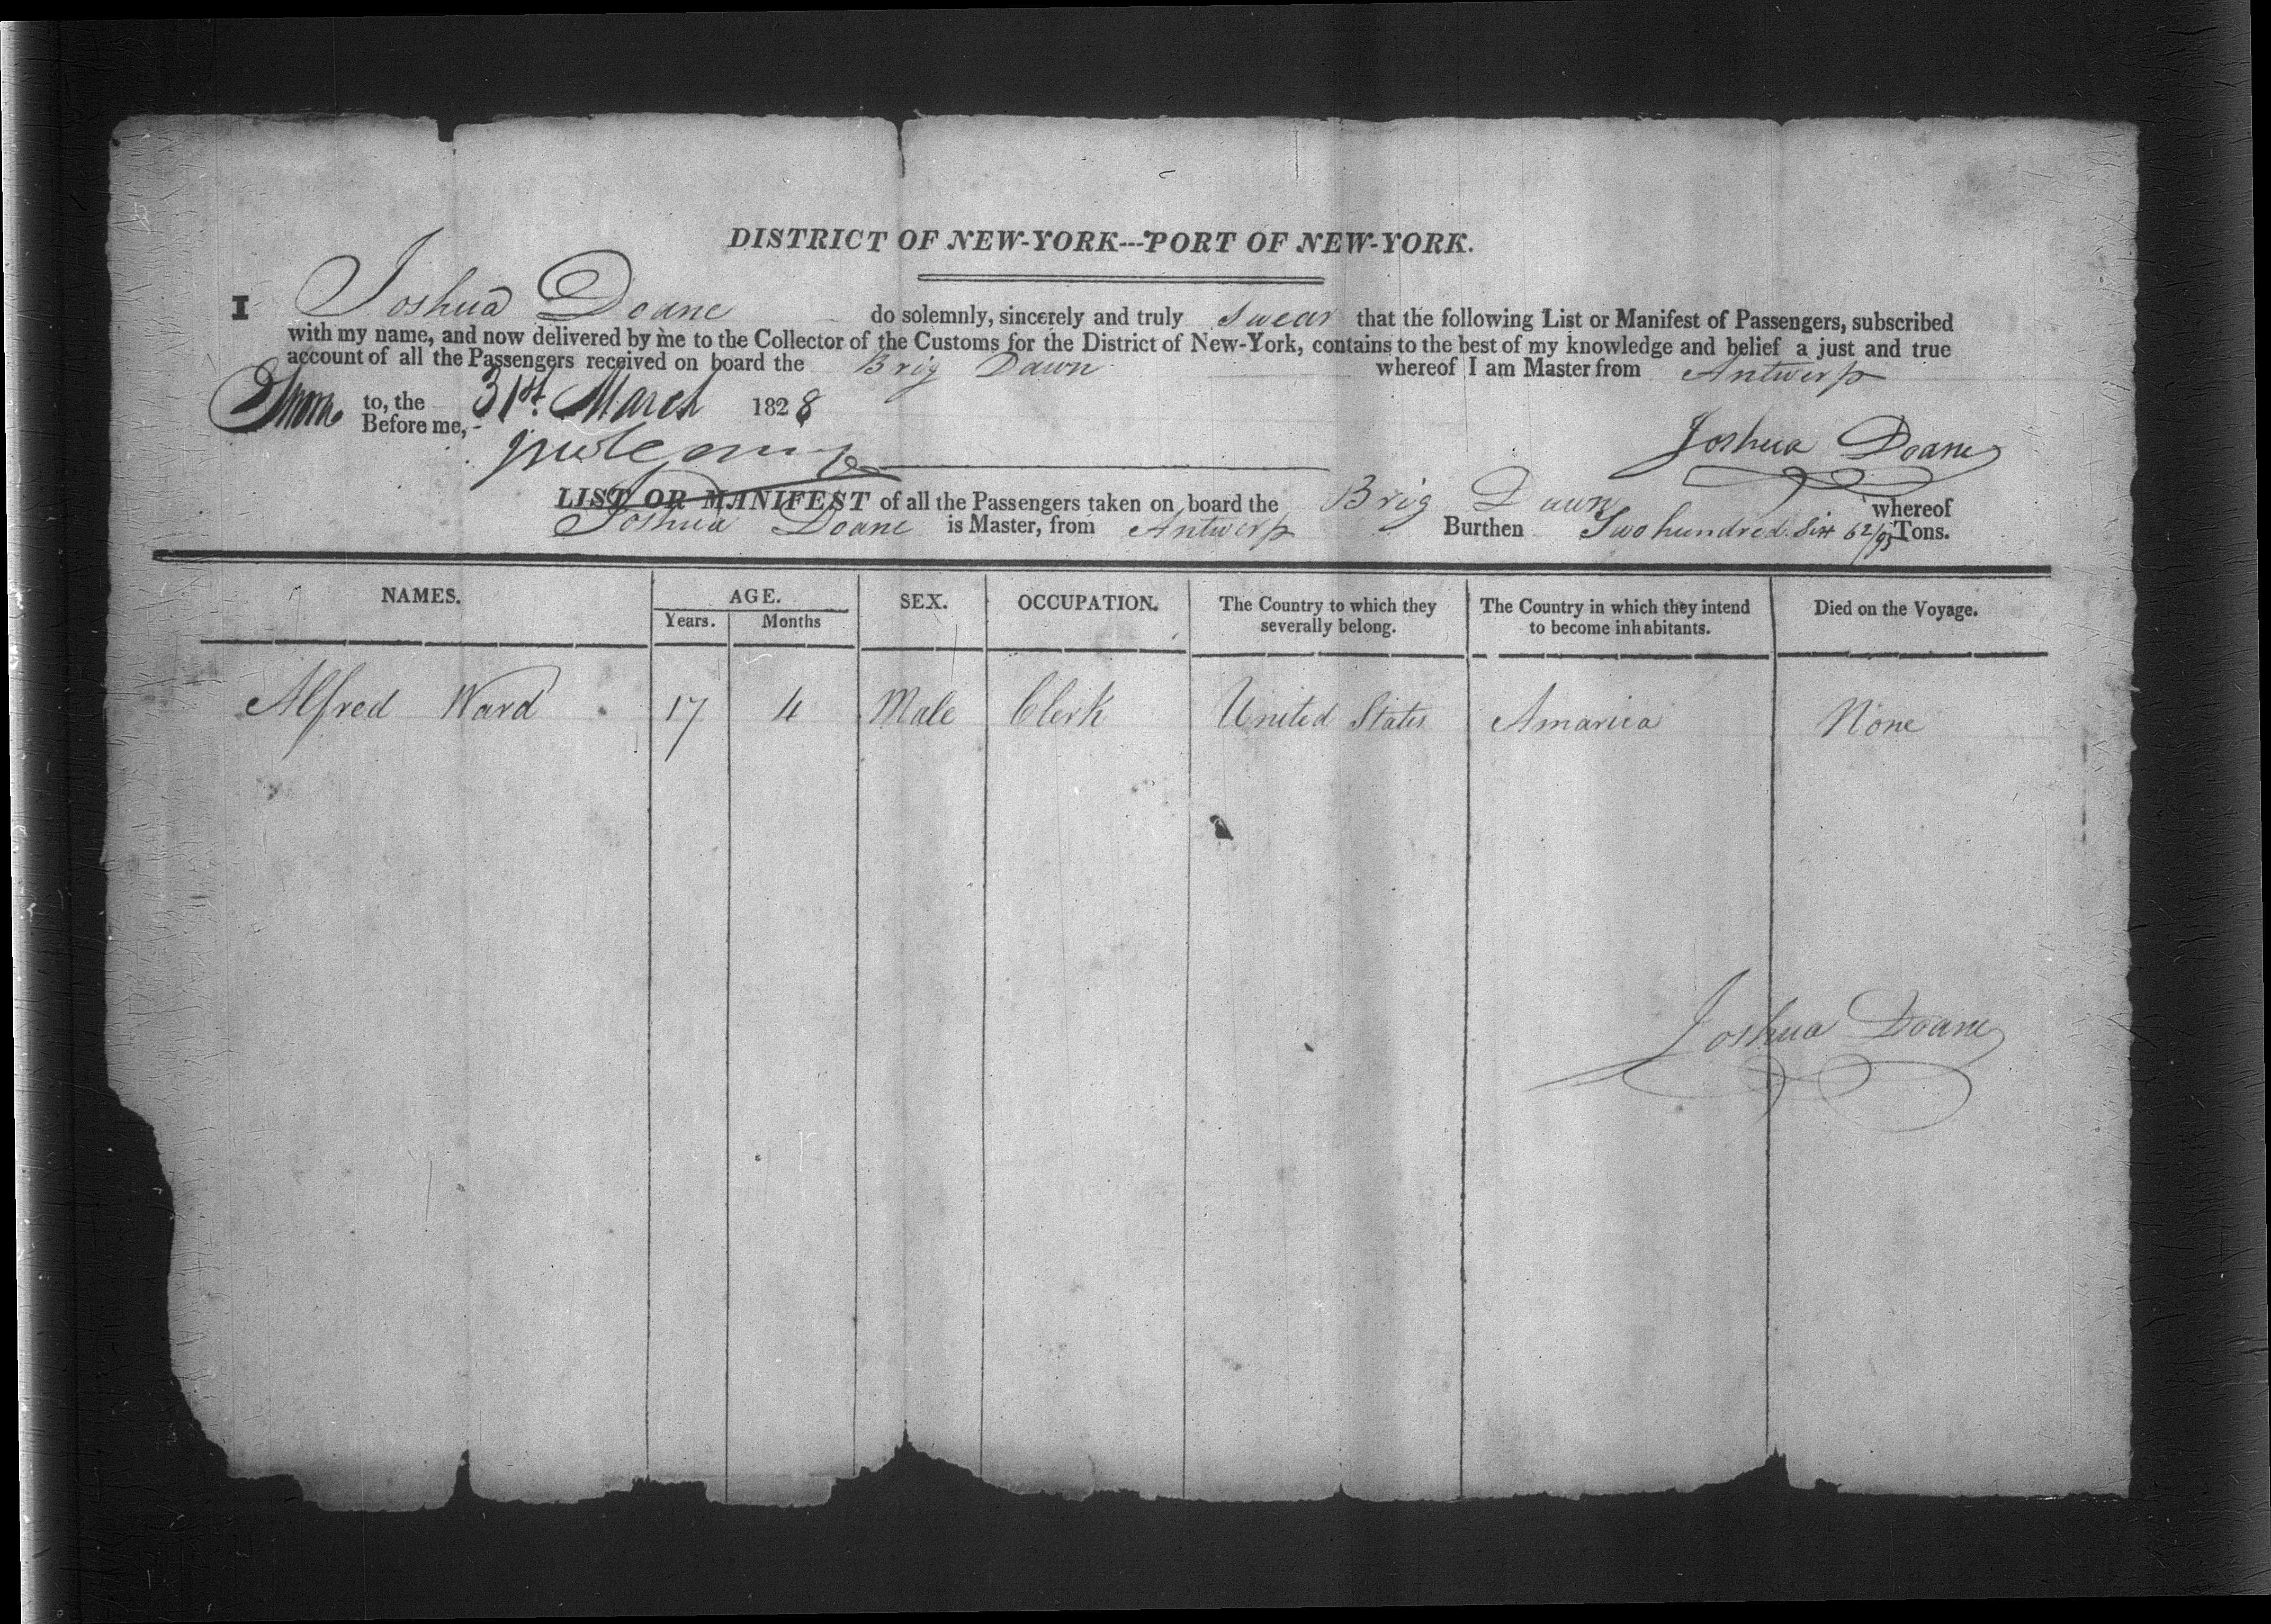 DISTRICT OF NEW-YORK---PORT OF NEW-YORK.
I Joshua Doane do solemnly, sincerely and truly swear that the following List or Manifest of Passengers, subscribed
with my name, and now delivered by me to the Collector of the Customs for the District of New-York, contains to the best of my knowledge and belief a just and true
account of all the Passengers received on board the Brig Dawn whereof I am Master from Antwerp
Sworn to, the 31st March 1828
Before me,
Joshua Doane
LIST OR MANIFEST of all the Passengers taken on board the Brig Dawn whereof
Joshua Doane is Master, from Antwerp Burthen Two hundred Six 62/95 Tons.
NAMES. AGE. SEX. OCCUPATION. The Country to which they severally belong. The Country in which they intend to become inhabitants. Died on the Voyage.
Years. Months
Alfred Ward 17 4 Male Clerk United States Amarica None
Joshua Doane